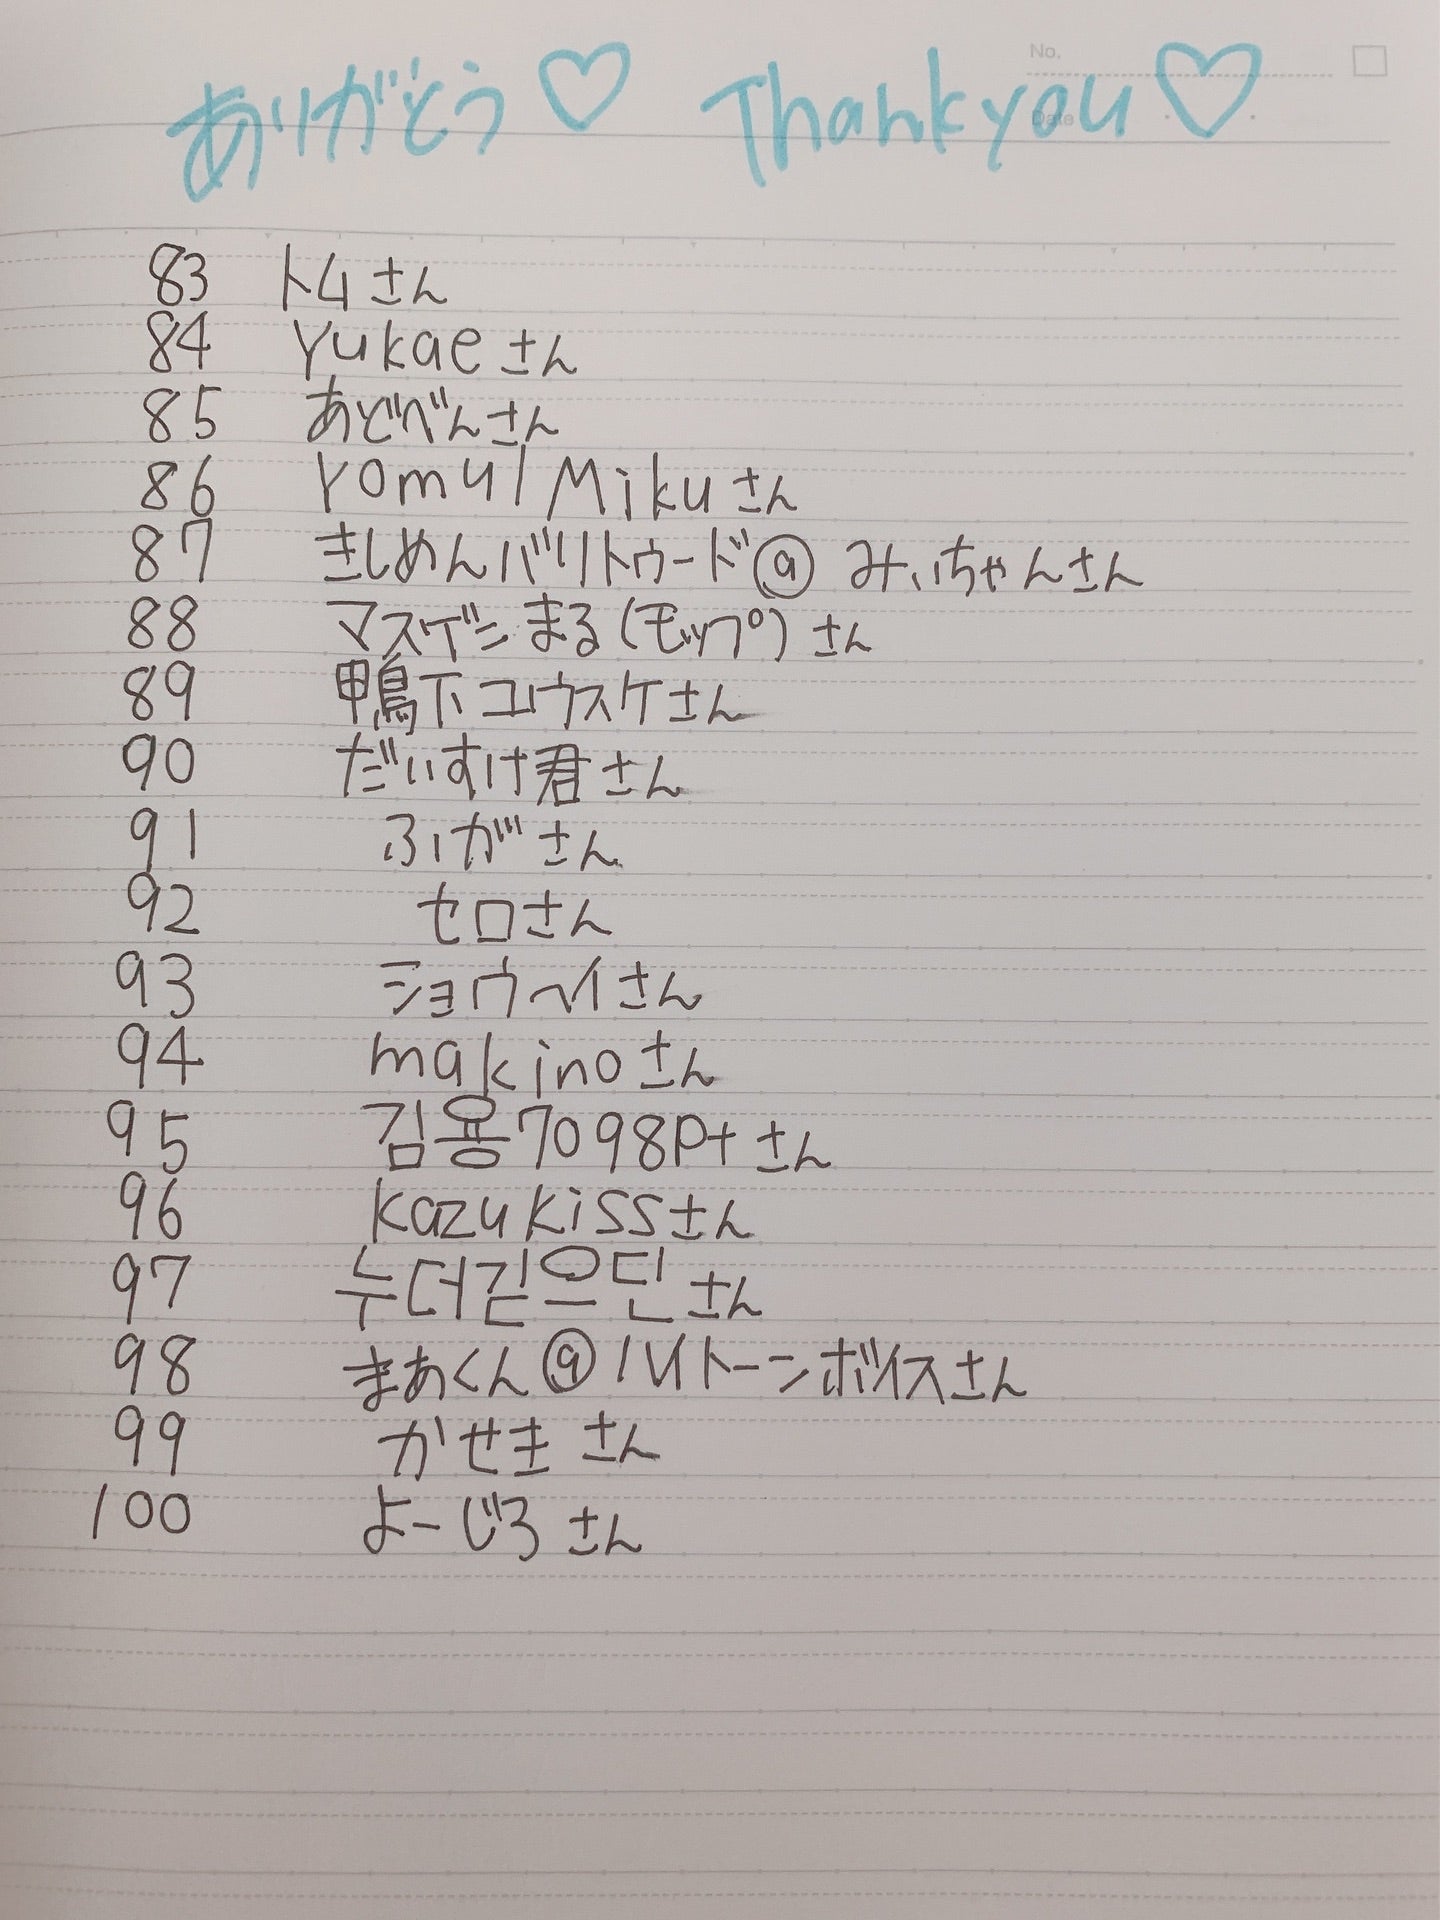 ありがとう♡ Thank you♡
No.
Date
83 トムさん
84 Yukaeさん
85 あどべんさん
86 YomulMikuさん
87 きしめんバリトゥード@みぃちゃんさん
88 マスゲンまる(モップ)さん
89 鴨下コウスケさん
90 だいすけ君さん
91 ふがさん
92 セロさん
93 ショウヘイさん
94 makinoさん
95 김용7098Ptさん
96 kazukissさん
97 누더긷으딘さん
98 まあくん@バリトーンボイスさん
99 かせきさん
100 よーじろさん